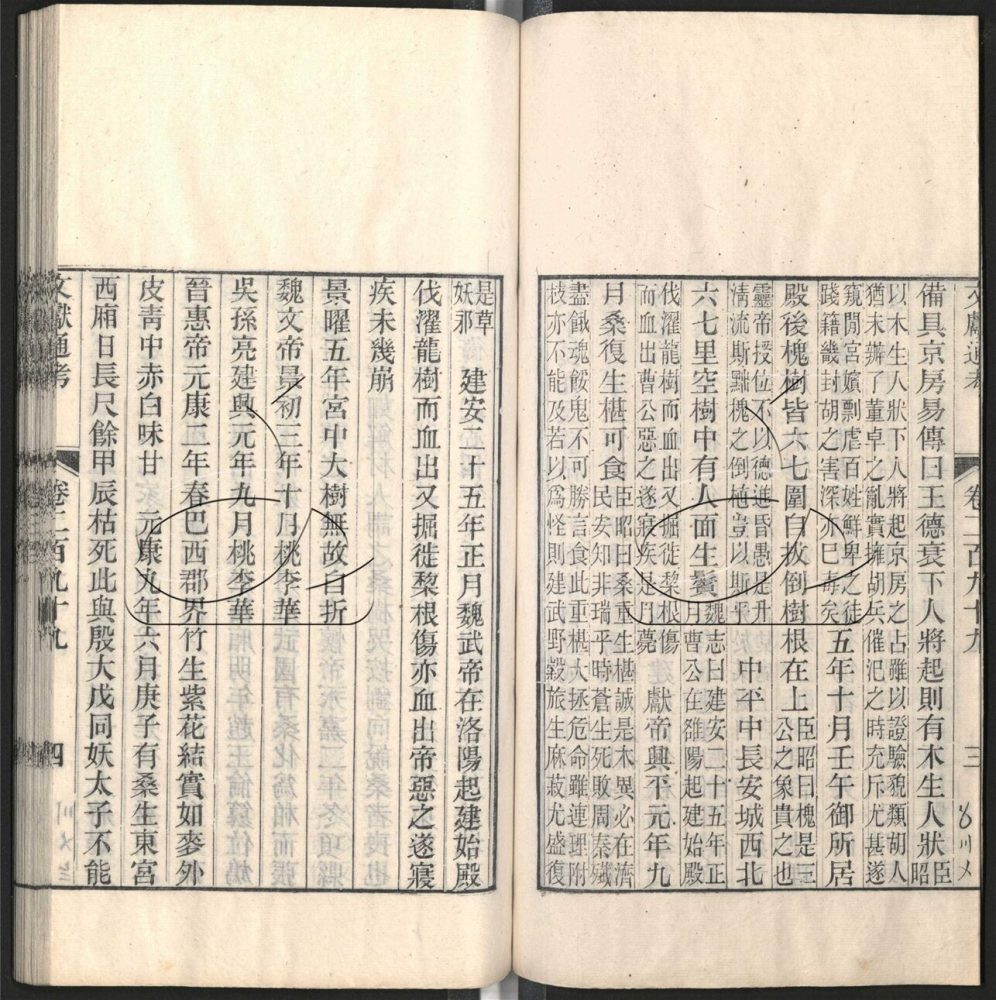 文獻通考 卷二百九十九 三
備具京房易傳曰王德衰下人將起則有木生人狀臣昭
以木生人狀下人將起京房之占雖以證驗貌類胡人
猶未辦了董卓之亂實擁胡兵傕汜之時充斥尤甚遂
窺閒宮嬪剽虐百姓鮮卑之徒
踐籍畿封胡之害深亦巳毒矣
五年十月壬午御所居
殿後槐樹皆六七圍自拔倒樹根在上
臣昭曰槐是三
公之象貴之也
靈帝授位不以德進昏愚是升
清流斯黜槐之倒植豈以斯乎
中平中長安城西北
六七里空樹中有人面生鬢
魏志曰建安二十五年正
月曹公在雒陽起建始殿
伐濯龍樹而血出又掘徙棃根傷
而血出曹公惡之遂寢疾是月薨
獻帝興平元年九
月桑復生椹可食
臣昭曰桑重生椹誠是木異必在濟
民安知非瑞乎時蒼生死敗周秦殲
盡餓魂餒鬼不可勝言食此重椹大拯危命雖連理附
枝亦不能及若以爲怪則建武野穀旅生麻菽尤盛復
是草
妖邪
建安二十五年正月魏武帝在洛陽起建始殿
伐濯龍樹而血出又掘徙棃根傷亦血出帝惡之遂寢
疾未幾崩
景曜五年宮中大樹無故自折
魏文帝景初三年十月桃李華
吳孫亮建興元年九月桃李華
晉惠帝元康二年春巴西郡界竹生紫花結實如麥外
皮青中赤白味甘 元康九年六月庚子有桑生東宮
西廂日長尺餘甲辰枯死此與殷大戊同妖太子不能
文獻通考 卷二百九十九 四